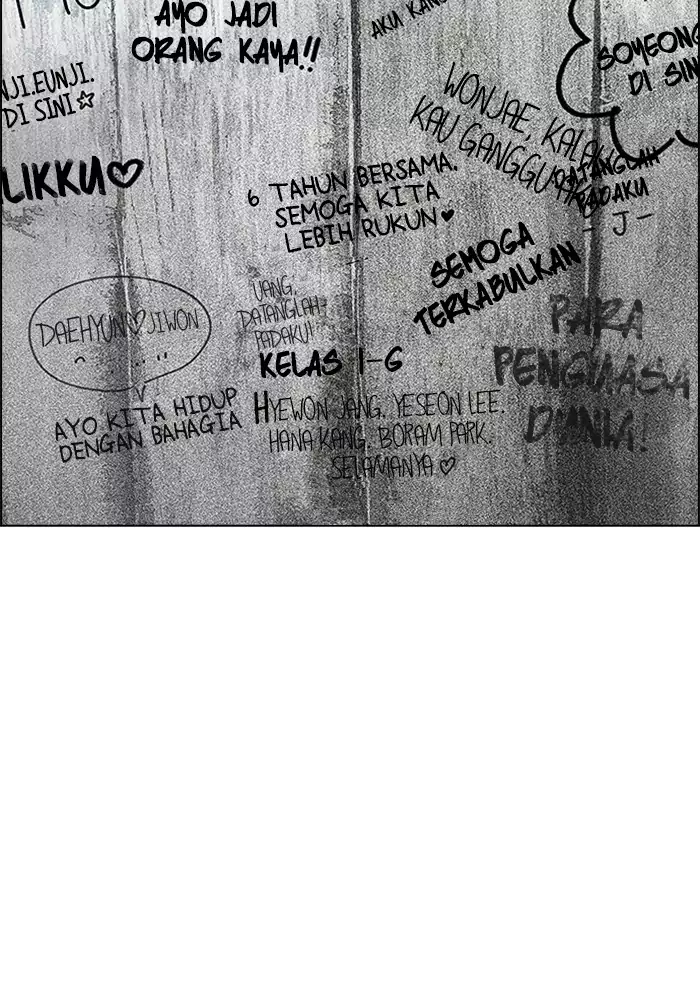 AYO JADI
ORANG KAYA!!
AKU
SOYEONG
DI SINI
EUNJI.
DI SINI☆
WONJAE, KALAU
KAU GANGGU
DATANGLAH
PADAKU
- J -
LIKKU♡
6 TAHUN BERSAMA.
SEMOGA KITA
LEBIH RUKUN♥
SEMOGA
TERKABULKAN
DAEHYUN♡JIWON
UANG,
DATANGLAH
PADAKU!
PARA
PENGUASA
DUNIA!
KELAS 1-6
AYO KITA HIDUP
DENGAN BAHAGIA
HYEWON JANG. YESEON LEE.
HANA KANG. BORAM PARK.
SELAMANYA ♡